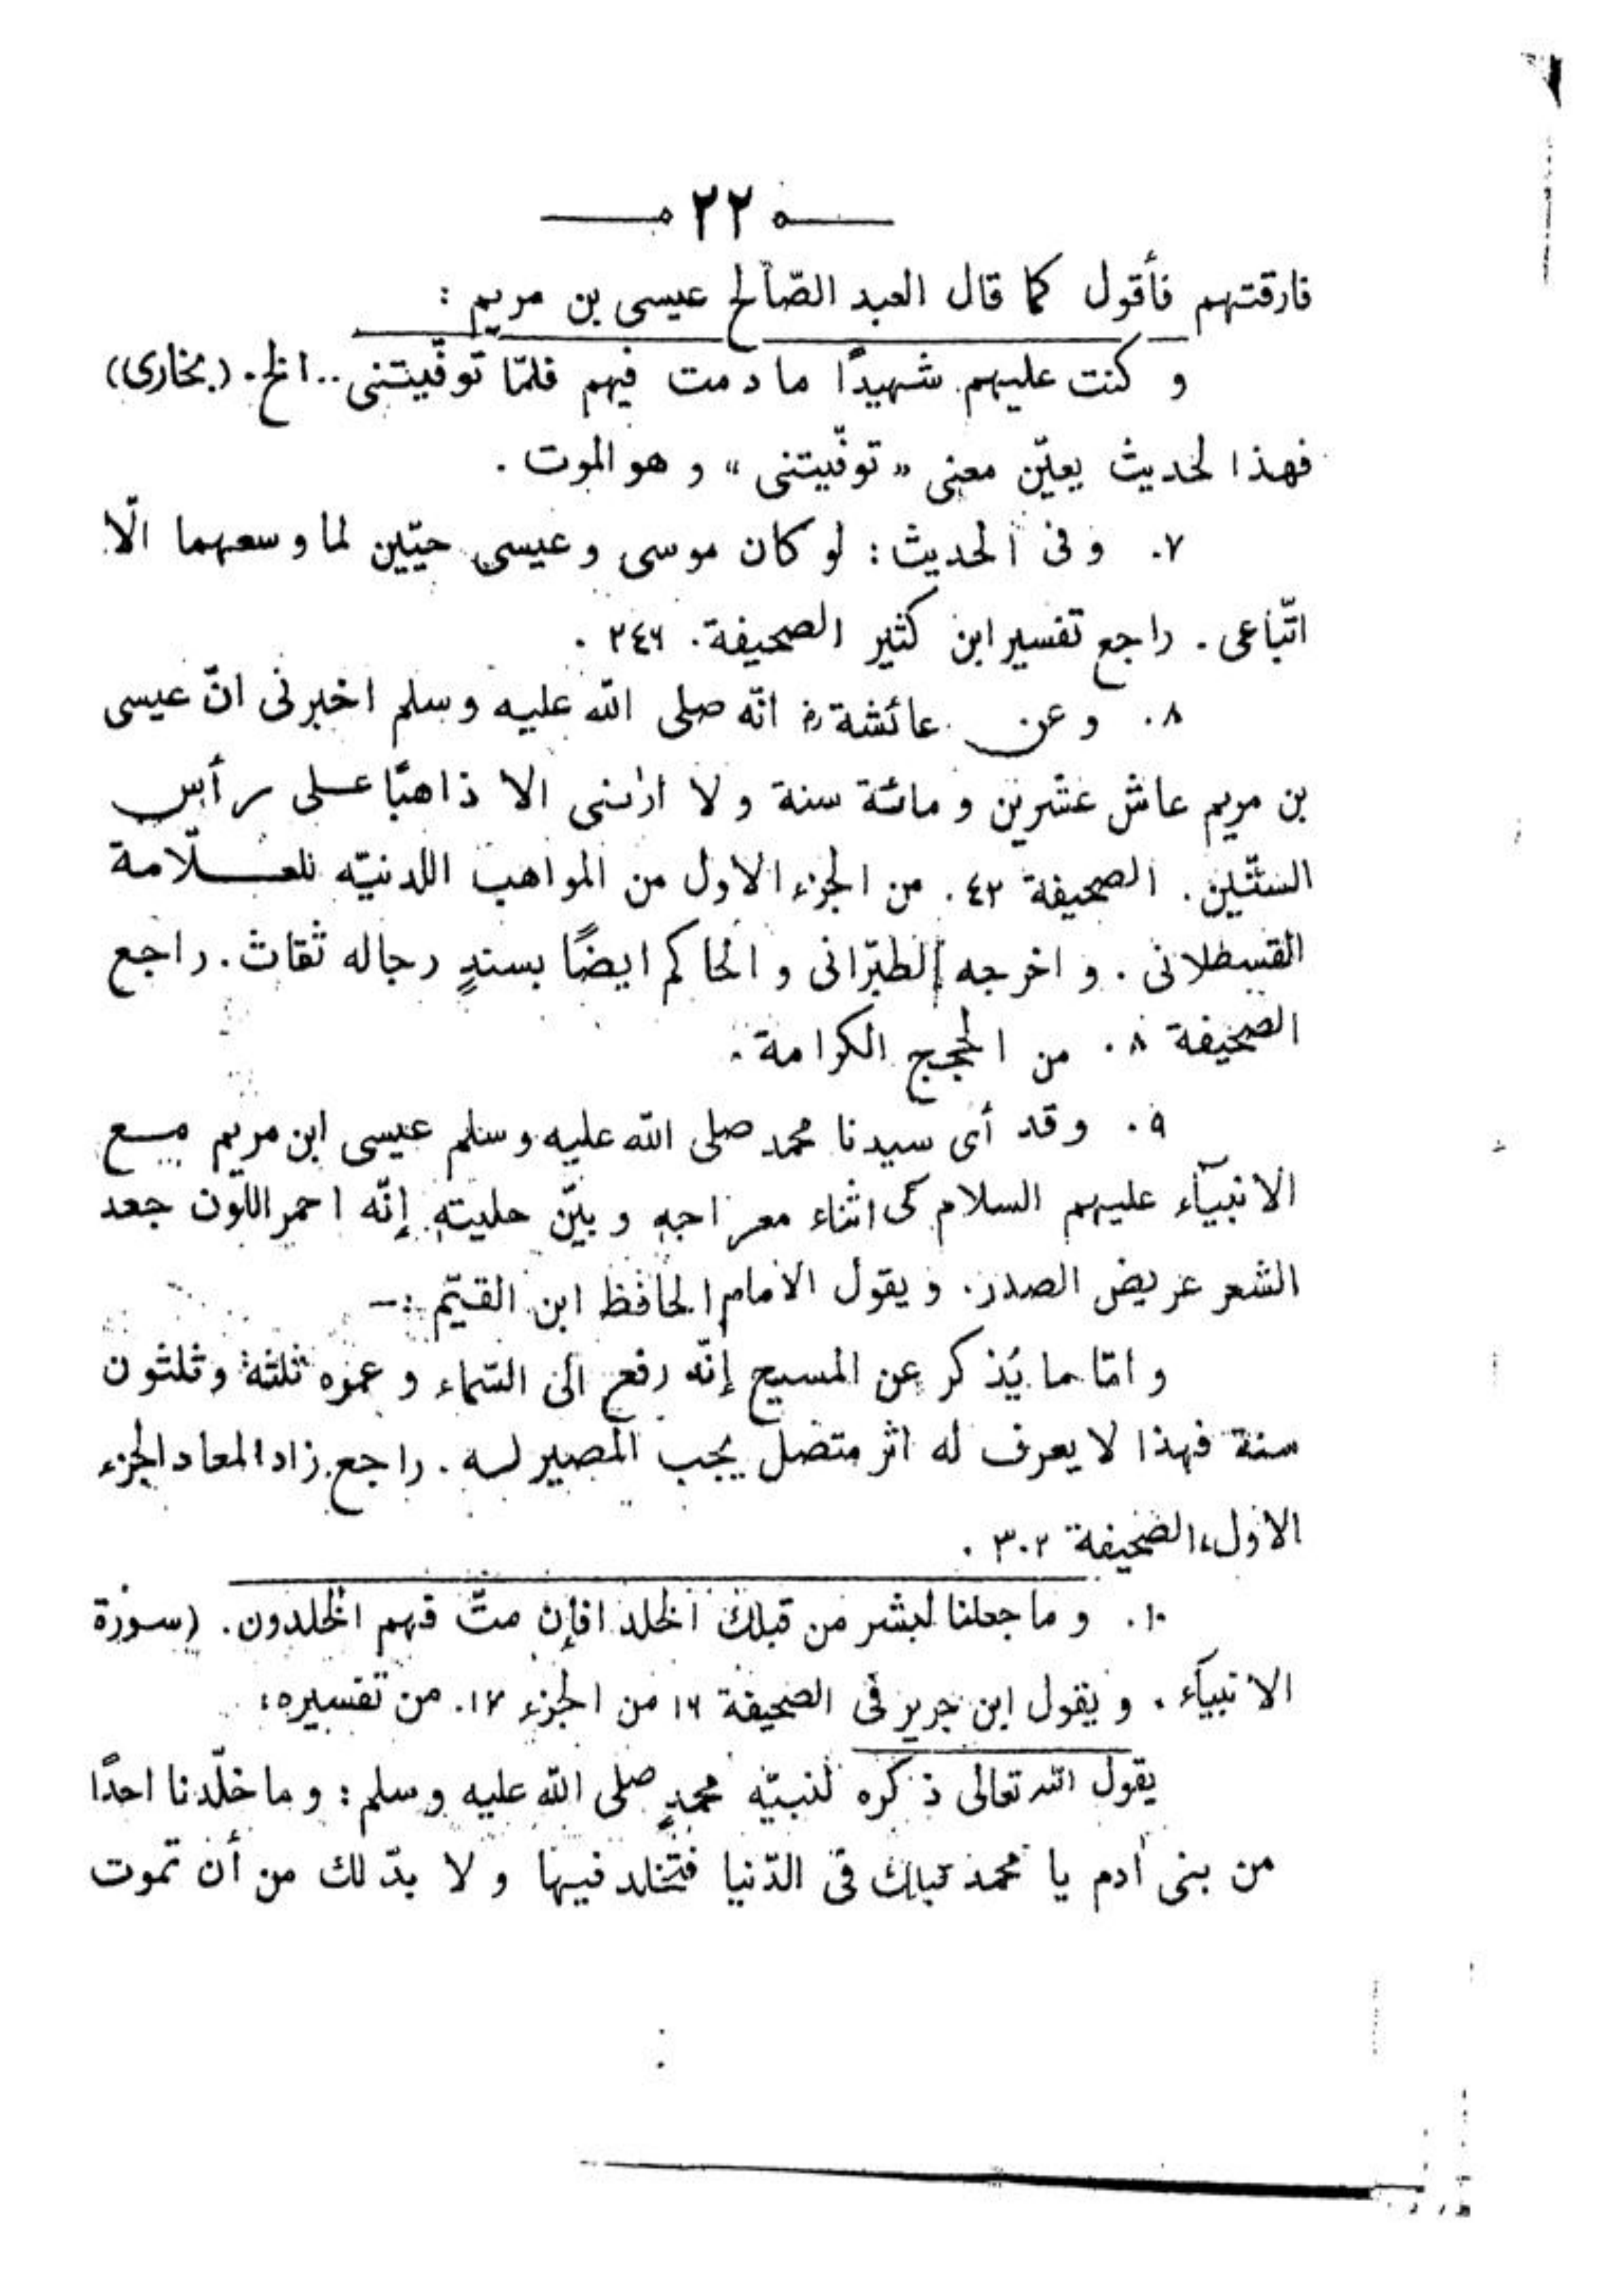 ٢٢
فارقتهم فأقول كما قال العبد الصّالح عيسى بن مريم :
و كنت عليهم شهيدًا ما دمت فيهم فلمّا توفّيتنى .. الخ. (بخارى)
فهذا لحديث يعيّن معنى « توفّيتنى » و هو الموت .
٧. و فى الحديث : لو كان موسى و عيسى حيّين لما وسعهما الّا
اتّباعى . راجع تفسير ابن كثير الصحيفة. ٢٤٦ .
٨. و عن عائشة رض انّه صلى الله عليه وسلم اخبرنى انّ عيسى
بن مريم عاش عشرين و مائة سنة و لا ارانى الا ذاهبًا على رأس
الستّين . الصحيفة ٤٢. من الجزء الاول من المواهب اللدنيّه للعلّامة
القسطلانى . و اخرجه الطبّرانى و الحاكم ايضًا بسندٍ رجاله ثقاث . راجع
الصحيفة ٨. من الحجج الكرامة .
٩. و قد أى سيدنا محمد صلى الله عليه وسلم عيسى ابن مريم مع
الانبيآء عليهم السلام فى اثناء معراجه و بيّن حليته إنّه احمر اللّون جعد
الشعر عريض الصدر . و يقول الامام الحافظ ابن القيّم :-
و امّا ما يُذكر عن المسيح إنّه رفع الى السّماء و عمره ثلثة و ثلثون
سنة فهذا لا يعرف له اثر متصل يجب المصير له . راجع زاد المعاد الجزء
الاول، الصحيفة ٣٠٢ .
١٠. و ما جعلنا لبشر من قبلك الخلد افإن متّ فهم الخلدون . (سورة
الانبيآء . و يقول ابن جرير فى الصحيفة ١٦ من الجزء ١٧. من تفسيره :
يقول الله تعالى ذكره لنبيّه محمدٍ صلى الله عليه وسلم : و ما خلّدنا احدًا
من بنى أدم يا محمد قبلك فى الدّنيا فتخلد فيها و لا بدّ لك من أن تموت